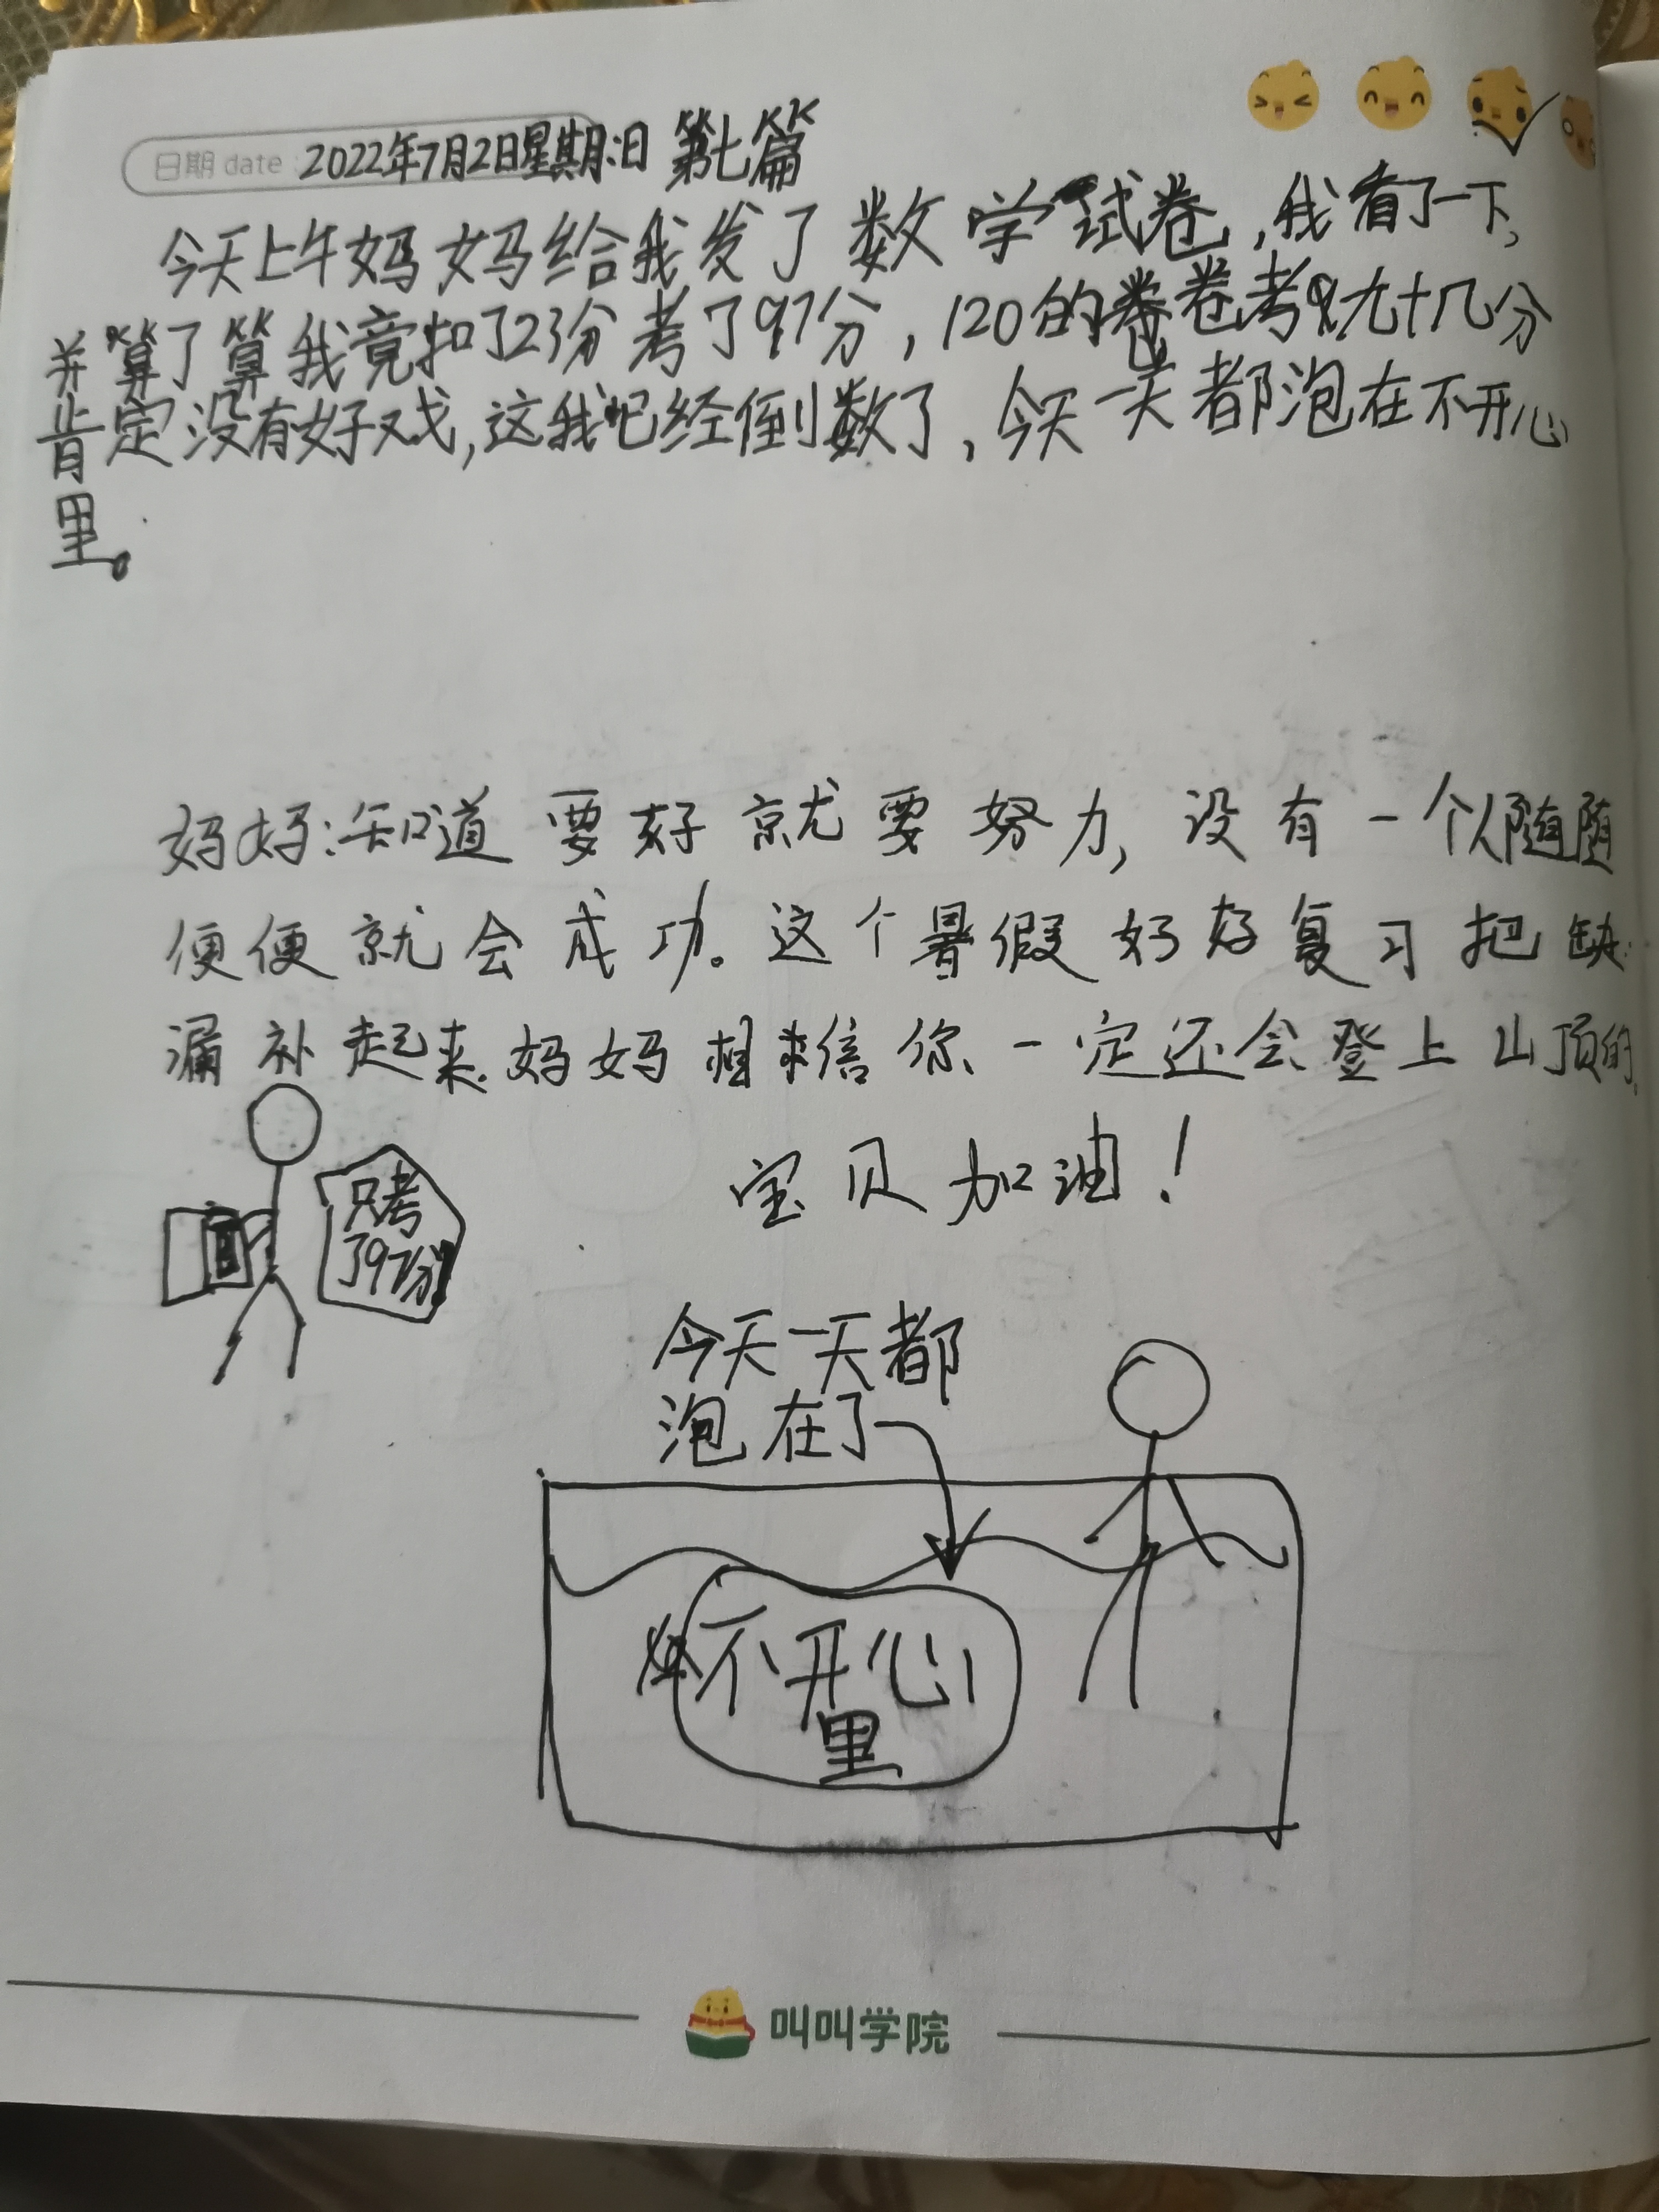 日期 date 2022年7月2日星期日 第七篇
今天上午妈妈给我发了数学试卷,我看了一下,
并算了算我竟扣了23分考了97分,120的卷卷考九十几分
肯定没有好戏,这我已经倒数了,今天一天都泡在不开心
里。
妈妈:知道要好就要努力,没有一个人随随
便便就会成功。这个暑假好好复习把缺
漏补起来.妈妈相信你一定还会登上山顶的.
宝贝加油!
只考
了97分
今天一天都
泡在了
不开心
里
叫叫学院